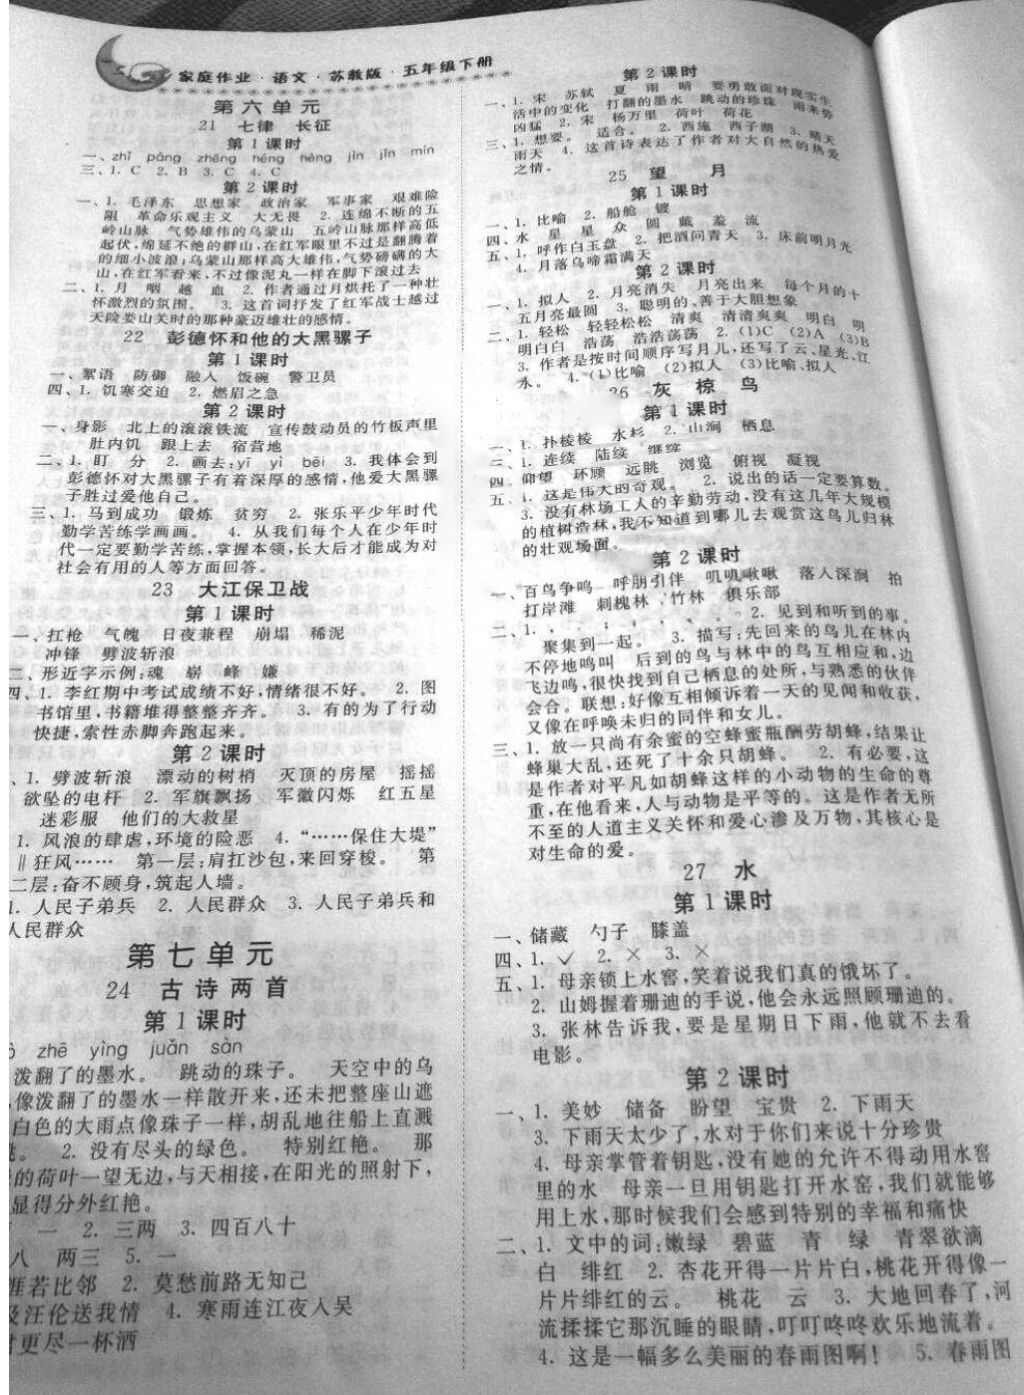 家庭作业·语文·苏教版·五年级下册
第六单元
21 七律 长征
第1课时
一、zhǐ páng zhēng héng hèng jìn jǐn mín
三、1. C 2. B 3. C 4. C
第2课时
一、1. 毛泽东 思想家 政治家 军事家 艰难险
阻 革命乐观主义 大无畏 2. 连绵不断的五
岭山脉 气势雄伟的乌蒙山 五岭山脉那样高低
起伏,绵延不绝的群山,在红军眼里不过是翻腾着
的细小波浪;乌蒙山那样高大雄伟,气势磅礴的大
山,在红军看来,不过像泥丸一样在脚下滚过去
二、1. 月 咽 越 血 2. 作者通过月烘托了一种壮
怀激烈的氛围。 3. 这首词抒发了红军战士越过
天险娄山关时的那种豪迈雄壮的感情。
22 彭德怀和他的大黑骡子
第1课时
一、絮语 防御 融入 饭碗 警卫员
四、1. 饥寒交迫 2. 燃眉之急
第2课时
一、身影 北上的滚滚铁流 宣传鼓动员的竹板声里
肚内饥 跟上去 宿营地
二、1. 盯 分 2. 画去:yī yì bēi 3. 我体会到
彭德怀对大黑骡子有着深厚的感情,他爱大黑骡
子胜过爱他自己。
三、1. 马到成功 锻炼 贫穷 2. 张乐平少年时代
勤学苦练学画画。 4. 从我们每个人在少年时
代一定要勤学苦练,掌握本领,长大后才能成为对
社会有用的人等方面回答。
23 大江保卫战
第1课时
一、扛枪 气魄 日夜兼程 崩塌 稀泥
冲锋 劈波斩浪
三、形近字示例:魂 崭 峰 嫌
四、1. 李红期中考试成绩不好,情绪很不好。 2. 图
书馆里,书籍堆得整整齐齐。 3. 有的为了行动
快捷,索性赤脚奔跑起来。
第2课时
、1. 劈波斩浪 漂动的树梢 灭顶的房屋 摇摇
欲坠的电杆 2. 军旗飘扬 军徽闪烁 红五星
迷彩服 他们的大救星
1. 风浪的肆虐,环境的险恶 4. “……保住大堤”
‖狂风…… 第一层:肩扛沙包,来回穿梭。 第
二层:奋不顾身,筑起人墙。
1. 人民子弟兵 2. 人民群众 3. 人民子弟兵和
人民群众
第七单元
24 古诗两首
第1课时
zhē yìng juǎn sàn
泼翻了的墨水。 跳动的珠子。 天空中的乌
,像泼翻了的墨水一样散开来,还未把整座山遮
白色的大雨点像珠子一样,胡乱地往船上直溅
。 2. 没有尽头的绿色。 特别红艳。 那
的荷叶一望无边,与天相接,在阳光的照射下,
显得分外红艳。
一 2. 三两 3. 四百八十
八 两三 5. 一
涯若比邻 2. 莫愁前路无知己
及汪伦送我情 4. 寒雨连江夜入吴
更尽一杯酒
第2课时
一、1. 宋 苏轼 夏 雨 晴 要勇敢面对现实生
活中的变化 打翻的墨水 跳动的珍珠 雨来势
凶猛 2. 宋 杨万里 荷叶 荷花
三、1. 想要。 适合。 2. 西施 西子湖 3. 晴天
雨天 4. 这首诗表达了作者对大自然的热爱
之情。
25 望月
第1课时
一、1. 比喻 2. 船舱 镀
四、水 星 星 众 圆 戴 羞 流
五、1. 呼作白玉盘 2. 把酒问青天 3. 床前明月光
4. 月落乌啼霜满天
第2课时
一、1. 拟人 2. 月亮消失 月亮出来 每个月的十
五月亮最圆 3. 聪明的、善于大胆想象
二、1. 轻松 轻轻松松 清爽 清清爽爽 明白 明
明白白 浩荡 浩浩荡荡 2. (1)C (2)A (3)B
3. 作者是按时间顺序写月儿,还写了云、星光、江
水。 4. (1)比喻 (2)拟人 (3)比喻、拟人
26 灰椋鸟
第1课时
一、1. 扑棱棱 水杉 2. 山涧 栖息
三、1. 连续 陆续 继续
四、仰望 环顾 远眺 浏览 俯视 凝视
五、1. 这是伟大的奇观。 2. 说出的话一定要算数。
3. 没有林场工人的辛勤劳动,没有这几年大规模
的植树造林,我不知道到哪儿去观赏这鸟儿归林
的壮观场面。
第2课时
一、百鸟争鸣 呼朋引伴 叽叽啾啾 落入深涧 拍
打岸滩 刺槐林 竹林 俱乐部
二、1. , . ; , , , 。 2. 见到和听到的事。
聚集到一起。 3. 描写:先回来的鸟儿在林内
不停地鸣叫 后到的鸟与林中的鸟互相应和,边
飞边鸣,很快找到自己栖息的处所,与熟悉的伙伴
会合。联想:好像互相倾诉着一天的见闻和收获,
又像在呼唤未归的同伴和女儿。
三、1. 放一只尚有余蜜的空蜂蜜瓶酬劳胡蜂,结果让
蜂巢大乱,还死了十余只胡蜂。 2. 有必要,这
是作者对平凡如胡蜂这样的小动物的生命的尊
重,在他看来,人与动物是平等的。这是作者无所
不至的人道主义关怀和爱心渗及万物,其核心是
对生命的爱。
27 水
第1课时
一、储藏 勺子 膝盖
四、1. √ 2. × 3. ×
五、1. 母亲锁上水窖,笑着说我们真的饿坏了。
2. 山姆握着珊迪的手说,他会永远照顾珊迪的。
3. 张林告诉我,要是星期日下雨,他就不去看
电影。
第2课时
一、1. 美妙 储备 盼望 宝贵 2. 下雨天
3. 下雨天太少了,水对于你们来说十分珍贵
4. 母亲掌管着钥匙,没有她的允许不得动用水窖
里的水 母亲一旦用钥匙打开水窖,我们就能够
用上水,那时候我们会感到特别的幸福和痛快
二、1. 文中的词:嫩绿 碧蓝 青 绿 青翠欲滴
白 绯红 2. 杏花开得一片片白,桃花开得像一
片片绯红的云。 桃花 云 3. 大地回春了,河
流揉揉它那沉睡的眼睛,叮叮咚咚欢乐地流着。
4. 这是一幅多么美丽的春雨图啊! 5. 春雨图